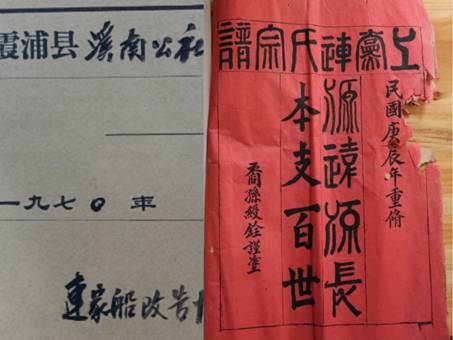 霞浦县 溪南公社
一九七〇年
連家船改
上黨連氏宗譜
民國庚辰年重脩
源遠流長
本支百世
裔孫銓謹